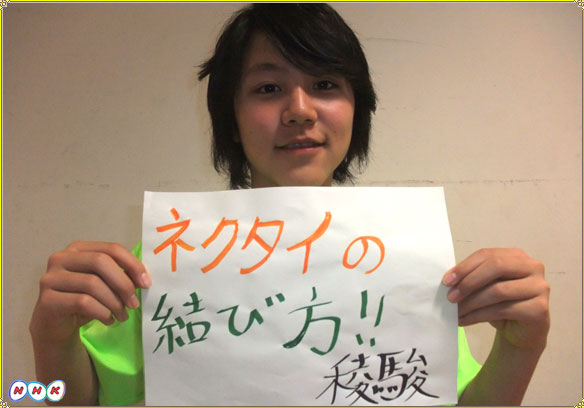 ネクタイの
結び方!!
稜駿
NHK